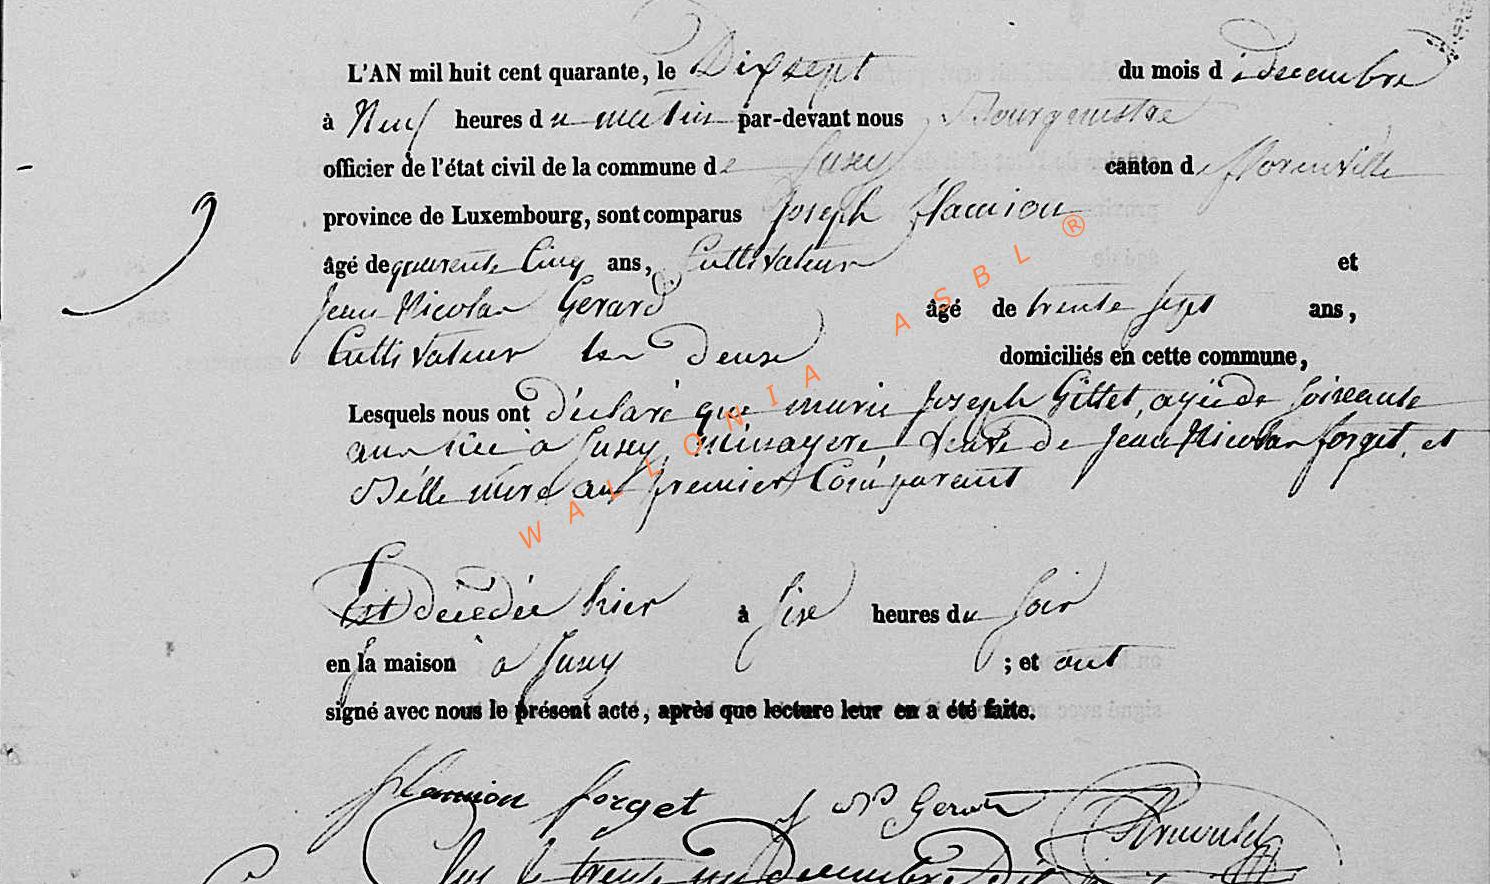 L'AN mil huit cent quarante, le Dixsept du mois de decembre
à Neuf heures du matin par-devant nous Bourgmestre
officier de l'état civil de la commune de Jusey canton de florenville
province de Luxembourg, sont comparus Joseph flamion
âgé de quarente Cinq ans, Cultivateur et
Jean Nicolas Gerard âgé de trente sept ans,
Cultivateur les deux domiciliés en cette commune,
Lesquels nous ont déclaré que marie Joseph Gillet, agée de soixante
ans née à Jusey, ménagere, veuve de Jean Nicolas forget, et
Belle mere au premier Comparant
Est décédée hier à six heures du soir
en sa maison à Jusey ; et ont
signé avec nous le présent acte, après que lecture leur en a été faite.
flamion forget J N Gerard
Clos le trente un Decembre
WALLONIA ASBL ®